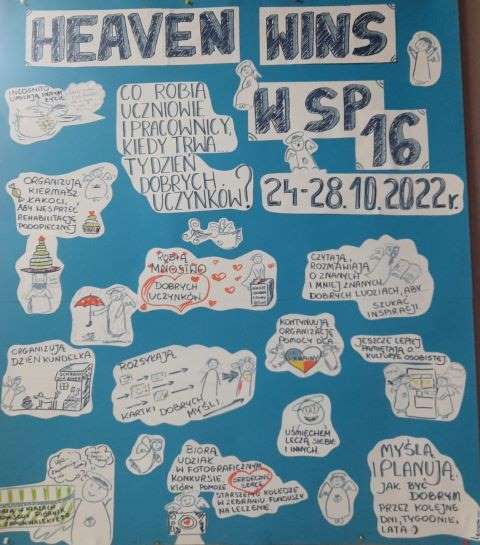 HEAVEN WINS
W SP
16
24-28.10.2022r.
INCOGNITO
UMILAJĄ INNYM
ŻYCIE
CO ROBIĄ
UCZNIOWIE
I PRACOWNICY,
KIEDY TRWA
TYDZIEŃ
DOBRYCH
UCZYNKÓW?
ORGANIZUJĄ
KIERMASZ
ŁAKOCI,
ABY WESPRZEĆ
REHABILITACJĘ
PODOPIECZNEJ
ROBIĄ
MNÓSTWO
DOBRYCH
UCZYNKÓW
CZYTAJĄ,
ROZMAWIAJĄ
O ZNANYCH
I MNIEJ ZNANYCH
DOBRYCH LUDZIACH, ABY
SZUKAĆ
INSPIRACJI
ORGANIZUJĄ
DZIEŃ KUNDELKA
ROZSYŁAJĄ
KARTKI DOBRYCH
MYŚLI
KONTYNUUJĄ
ORGANIZACJĘ
POMOCY DLA
UKRAINY
JESZCZE LEPIEJ
PAMIĘTAJĄ O
KULTURZE OSOBISTEJ
UŚMIECHEM
LECZĄ SIEBIE
I INNYCH.
BIORĄ
UDZIAŁ
W FOTOGRAFICZNYM
KONKURSIE,
KTÓRY POMOŻE
SERDECZNE
SERCE
STARSZEMU KOLEDZE
W ZEBRANIU FUNDUSZY
NA LECZENIE
MYŚLĄ
I PLANUJĄ,
JAK BYĆ
DOBRYM
PRZEZ KOLEJNE
DNI, TYGODNIE,
LATA :)